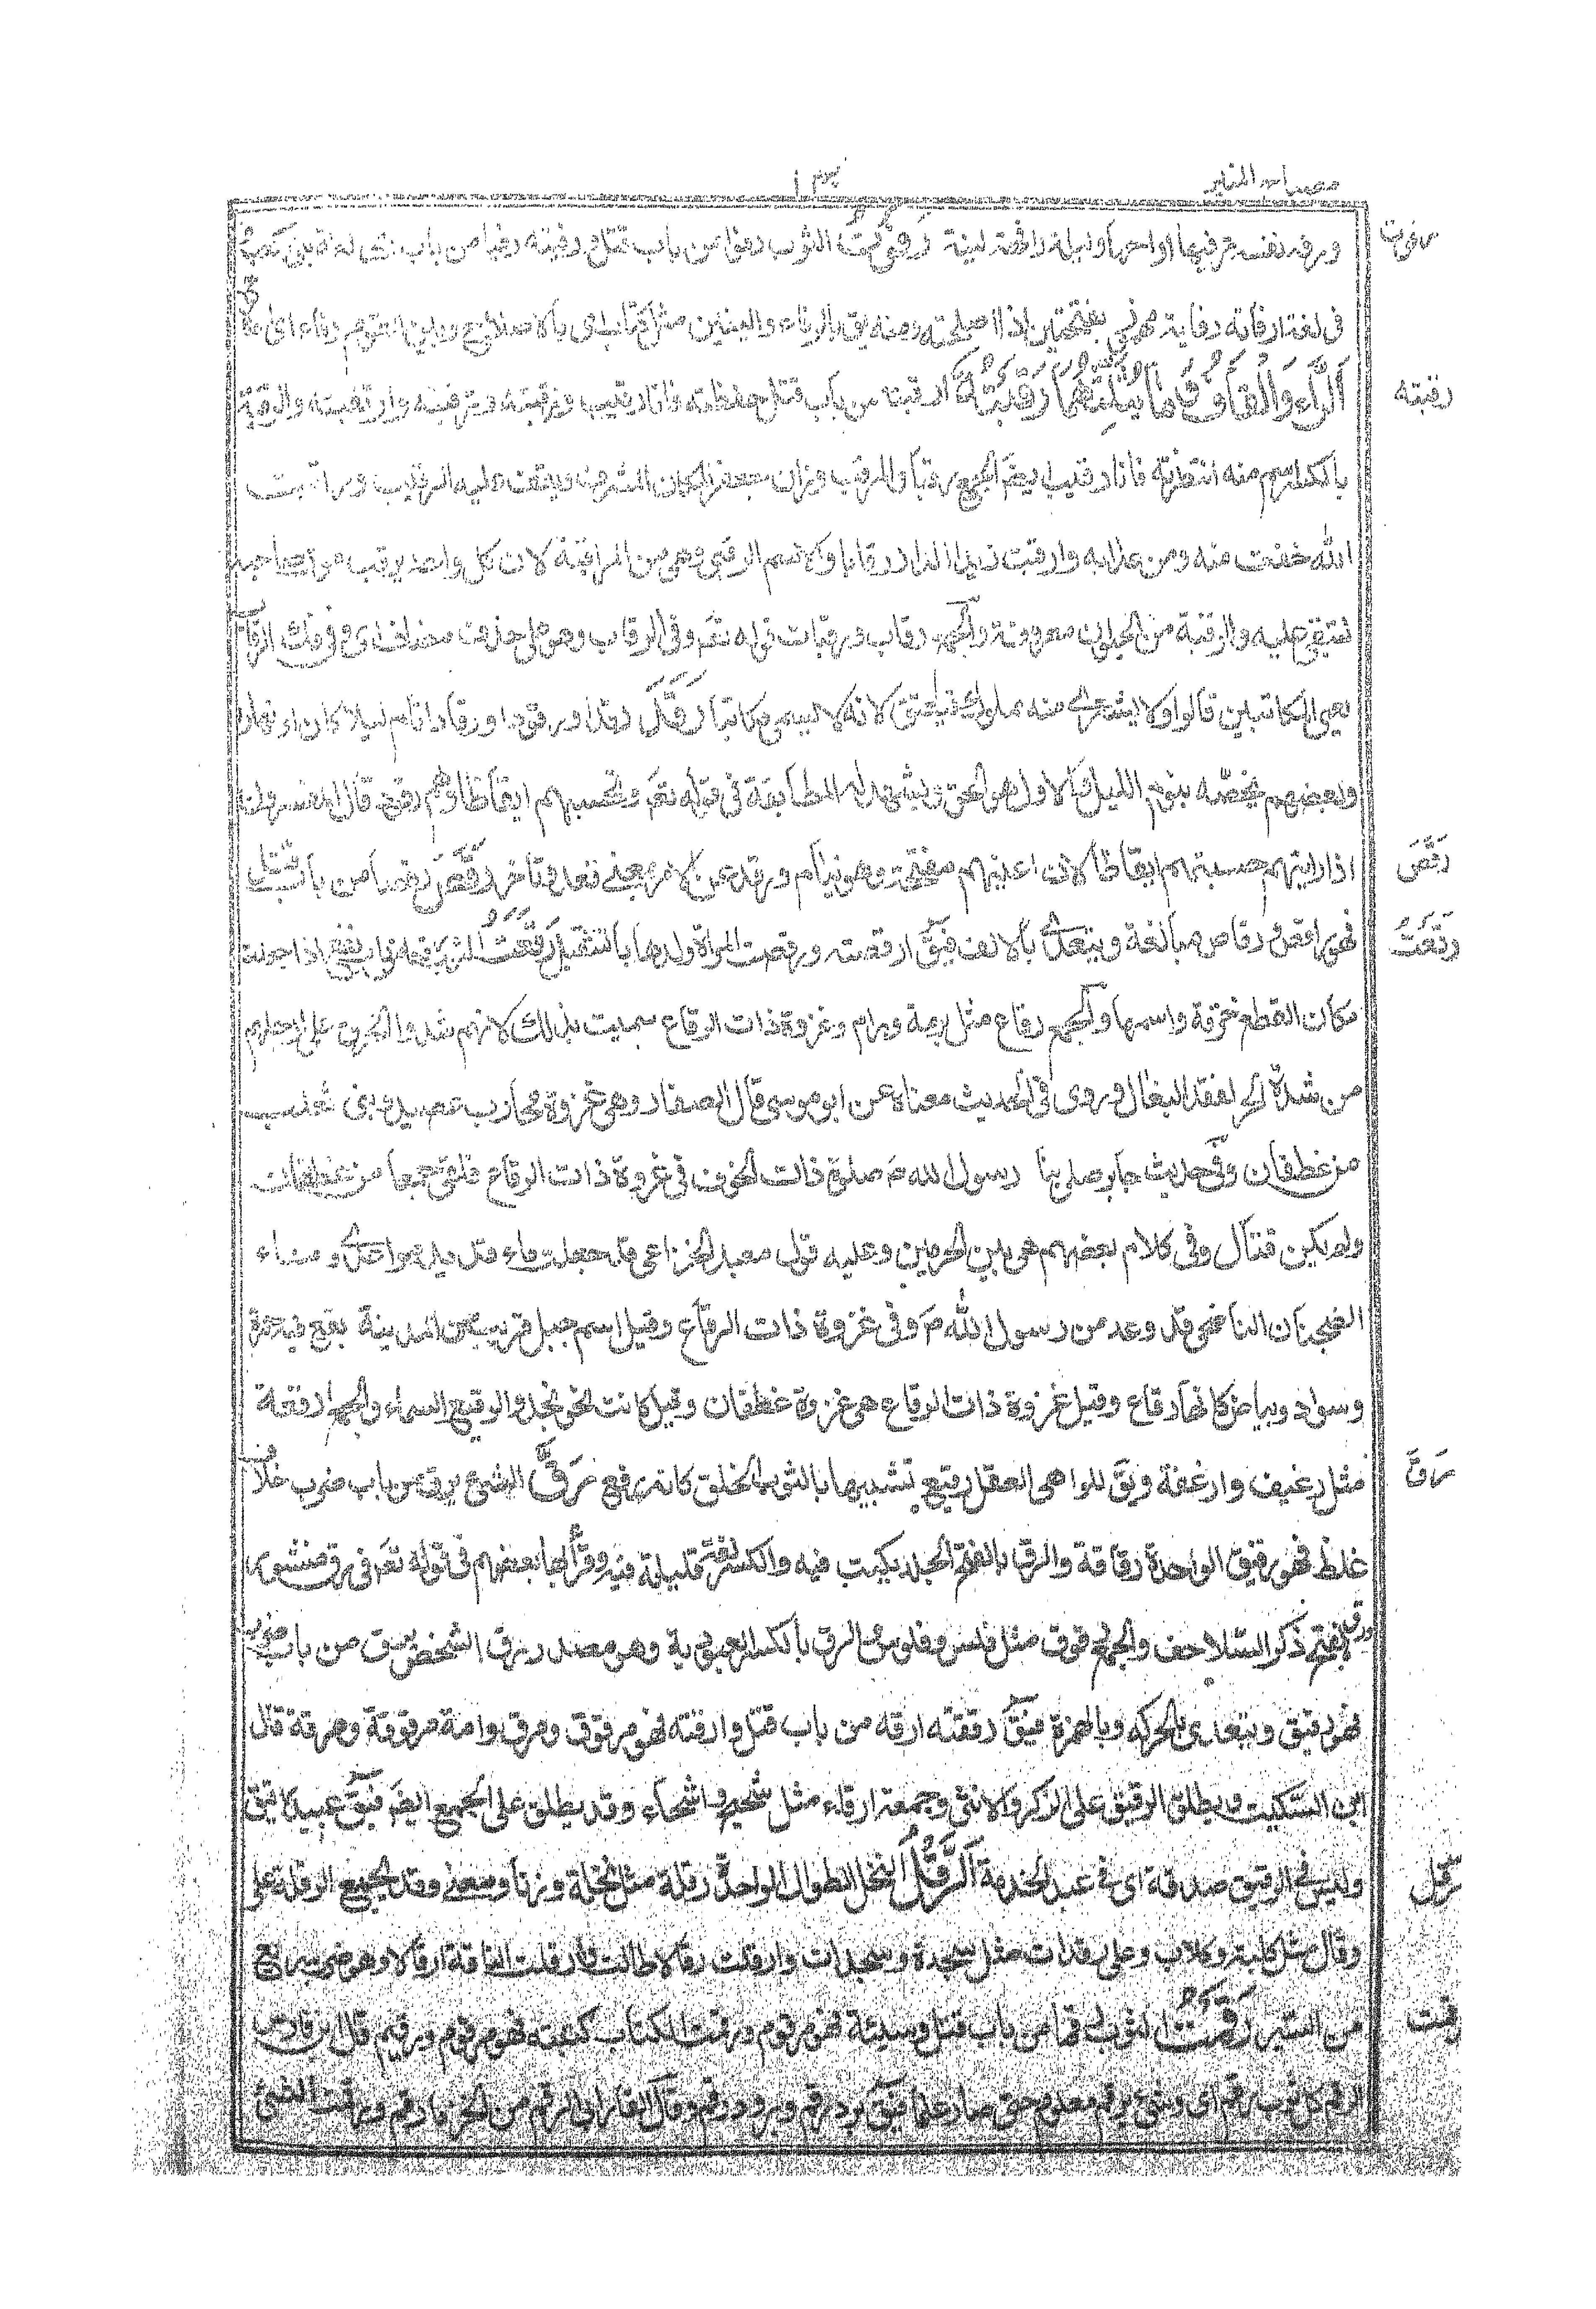 مصباح المنير
رفوت
ورفه نفسه ترفيها اراحها وليلة رافهة لينة رَفَوْتُ الثوب رفوا من باب قتل ورفيته رفيا من باب رمى لغة بنى كعب
فى لغة ارفاته بفتحتين اذا اصلحته ومنه يق بالرفاء والبنين مثل كتاب اى بالاصلاح وبين القوم رفاء اى
رقبته
اَلرَّاءِ وَالْقَافِ وَمَا يُثَلِّثُهُمَا رَقَبْتُهُ ارقبه من باب قتل حفظته فانا رقيب ورقبته وترقبته وارتقبته والرقبة
بالكسر اسم منه انتظرته فانا رقيب ايضا والجمع رقبا والمرقب وزان جعفر المكان المشرف يقف عليه الرقيب وراقبت
الله خفت منه ومن عذابه وارقبت زيدا الدار ارقابا والاسم الرقبى وهى من المراقبة لان كل واحد يرقب موت صاحبه
لتبقى عليه والرقبة من الحيوان معروفة والجمع رقاب ورقبات قوله تعم وفى الرقاب وهو على حذف مضاف اى وفى فك الرقاب
يعنى المكاتبين قالوا ولا يشترى منه مملوك فيعتق لانه لا يسمى مكاتبا رَقَدَ رقدا ورقودا ورقادا نام ليلا كان او نهارا
وبعضهم يخصه بنوم الليل والاول هو الحق ويشهد له المطابقة فى قوله تعم وتحسبهم ايقاظا وهم رقود قال المفسرون
رَقَصَ
اذا رايتهم حسبتهم ايقاظا لان اعينهم مفتحة وهم نيام ورقد عن الامر بمعنى قعد وتاخر رَقَصَ رقصا من باب قتل
رَقَعْتُ
فهو راقص ورقاص مبالغة ويتعدى بالالف فيق ارقصته ورقصت المراة ولدها بالتثقيل رَقَعْتُ الثوب رقعا من باب نفع اذا جعلت
مكان القطع خرقة واسمها والجمع رقاع مثل برمة وبرام وغزوة ذات الرقاع سميت بذلك لانهم شدوا الخرق على ارجلهم
من شدة الحر لفقد النعال وروى فى الحديث معناه عن ابو موسى قال الصفار وهى غزوة محارب خصفة وبنى ثعلبة
من غطفان وفى حديث جابر صلى بنا رسول الله ص صلوة ذات الخوف فى غزوة ذات الرقاع فلقى جمعا من غطفان
ولم يكن قتال وفى كلام بعضهم هو بين الحرمين وعليه قول معبد الخزاعى قد جعلت ماء قديد موعدى وماء
الضجنان قد وعد من رسول الله ص وفى غزوة ذات الرقاع وقيل اسم جبل قريب من المدينة بقع فيه حمرة
وسواد وبياض كانها رقاع وقيل غزوة ذات الرقاع هى غزوة غطفان وقيل كانت نحو نجد والرقيع السماء والجمع ارقعة
رَقَّ
مثل رغيف وارغفة ويق للواهى العقل رقيع تشبيها بالثوب الخلق كانه رقع رَقَّ الشئ يرق من باب ضرب خلاف
غلظ فهو رقيق الواحدة رقاقة والرق بالفتح الجلد يكتب فيه والكسر لغة قليلة فيه وقرأ بها بعضهم فى قوله تعم فى رق منشور
والرق بالفتح ذكر السلاحف والجمع رقوق مثل فلس وفلوس والرق بالكسر العبودية وهو مصدر رق الشخص يرق من باب ضرب
فهو رقيق ويتعدى بالحركة وبالهمزة فيق رققته ارقه من باب قتل وارقته فهو مرقوق ومرق وامة مرقوقة ومرقة قال
ابن السكيت ويطلق الرقيق على الذكر والانثى وجمعه ارقاء مثل شحيح واشحاء وقد يطلق على الجمع ايضا فيق عبيد رقيق
رقل
وليس فى الرقيق صدقة اى فى عبد الخدمة اَلرَّقْلُ النخل الطوال الواحدة رقلة مثل نخلة وزنا ومعنى وقد تجمع الرقلة على
رقال مثل كلبة وكلاب وعلى رقلات مثل سجدة وسجدات وارقلت رقالا طالت وارقلت الناقة ارقالا وهو ضرب سريع
رقمت
من السير رَقَمْتُ الثوب رقما من باب قتل وشيته فهو مرقوم ورقمت الكتاب كتبته فهو مرقوم ورقيم قال ابن فارس
الرقم كل ثوب رقم اى وشى برقم معلوم حتى صار علما فيق برد رقم وبرود رقم وقال الفارابى الرقم من الخز ما رقم ورقمت الشئ